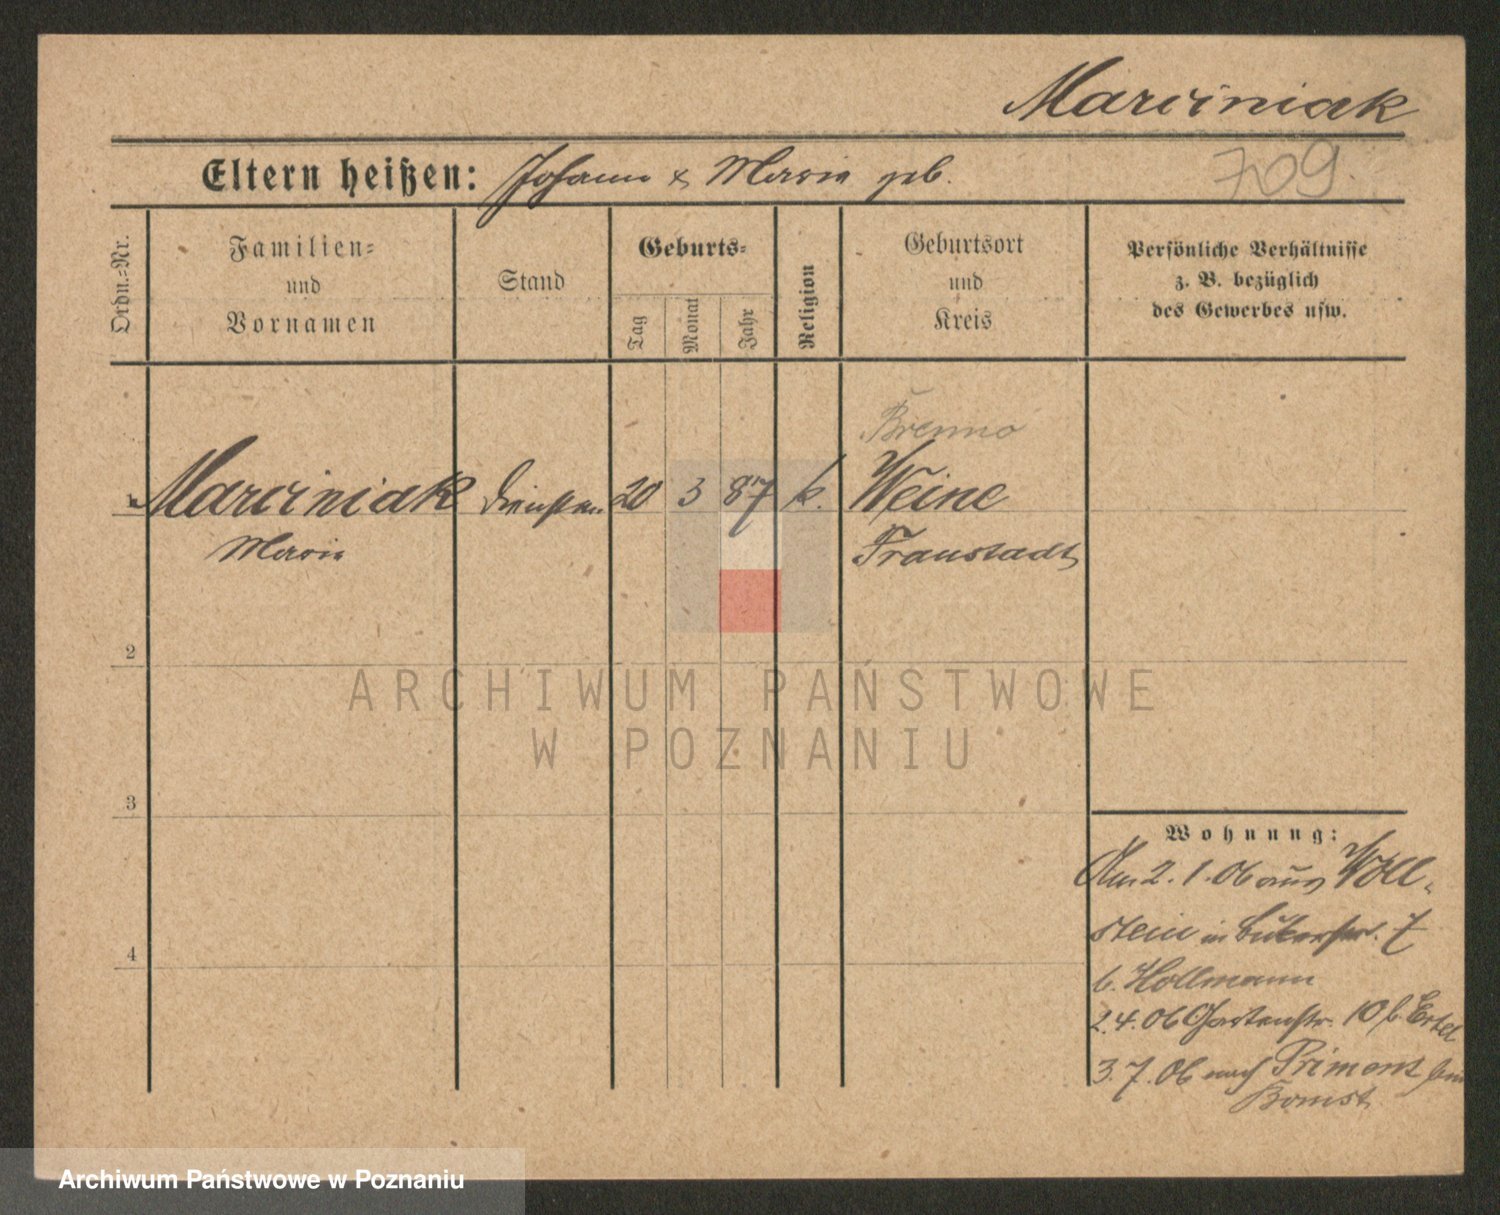 Marciniak
Eltern heißen: Johann & Marie geb.
709
Ordn.-Nr.
Familien-
und
Vornamen
Stand
Geburts-
Tag
Monat
Jahr
Religion
Geburtsort
und
Kreis
Persönliche Verhältnisse
z. B. bezüglich
des Gewerbes usw.
Brenno
Marciniak 20 3 87 k. Weine
Marie Fraustadt
2
3
4
Wohnung:
Am 2.1.06 aus Woll-
stein in 7
b. Hollmann
2.4.06 Gartenstr. 10 b. Ertel
3.7.06 nach Priment
Bomst
ARCHIWUM PAŃSTWOWE
W POZNANIU
Archiwum Państwowe w Poznaniu